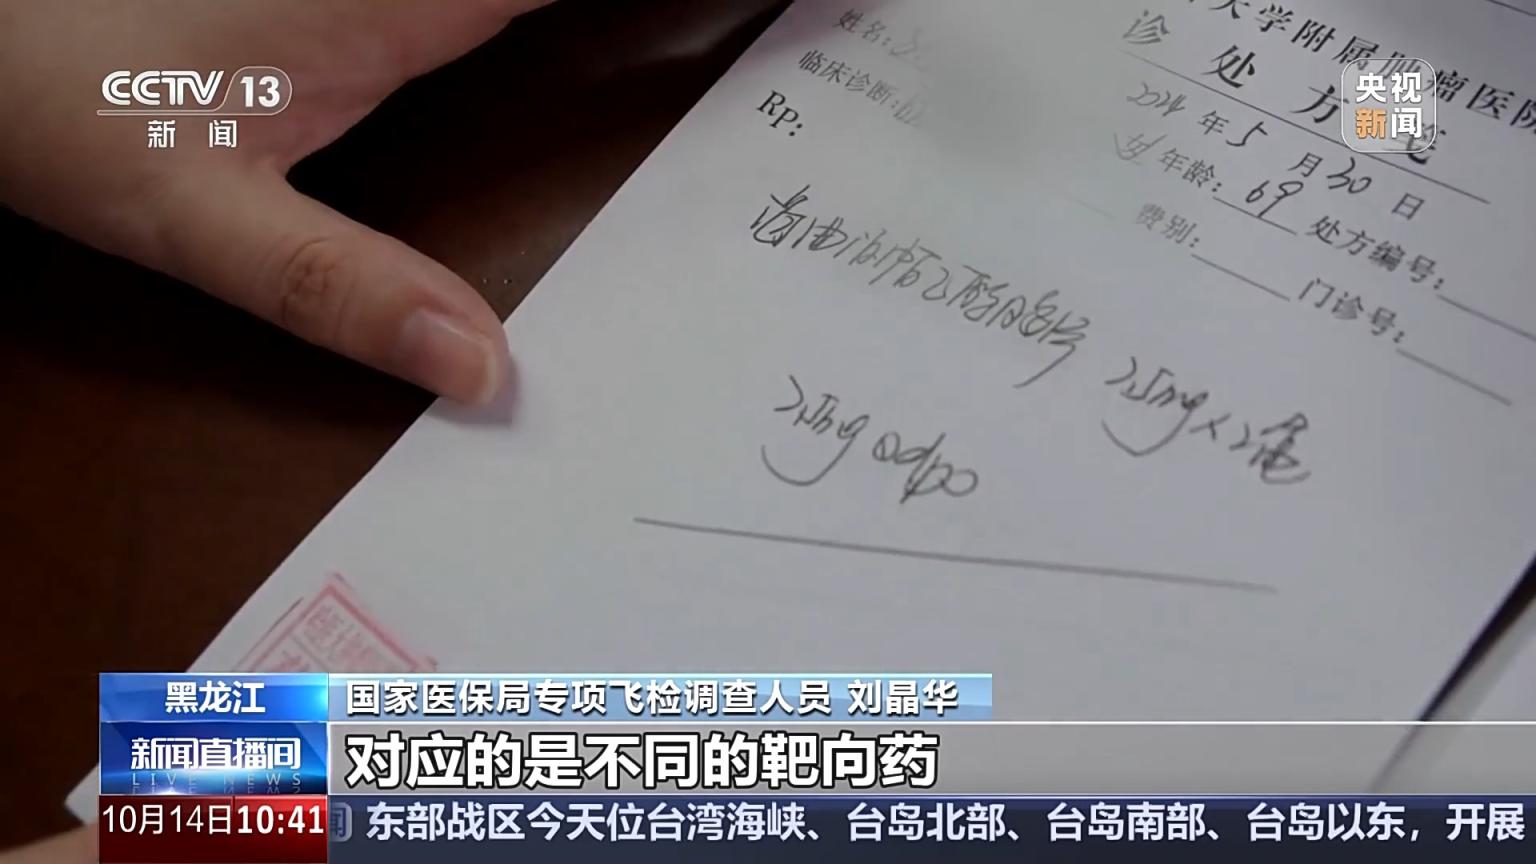 CCTV 13
新闻
央视
新闻
大学附属肿瘤医院
诊处方笺
姓名:
2024年5月30日
临床诊断:
女 年龄: 69 处方编号:
Rp:
费别: 门诊号:
2.5mg
2.5mg qd po
黑龙江
国家医保局专项飞检调查人员 刘晶华
新闻直播间
LIVE NEWS
对应的是不同的靶向药
10月14日10:41
闻 东部战区今天位台湾海峡、台岛北部、台岛南部、台岛以东，开展